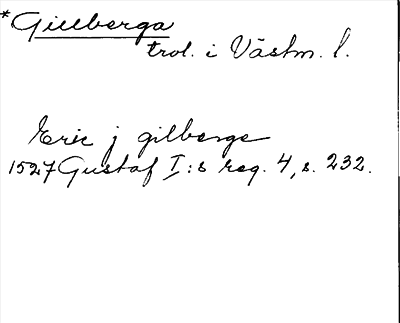 *Gillberga
trol. i Västm. l.
Eric j gilberge
1527 Gustaf I:s reg. 4, s. 232.